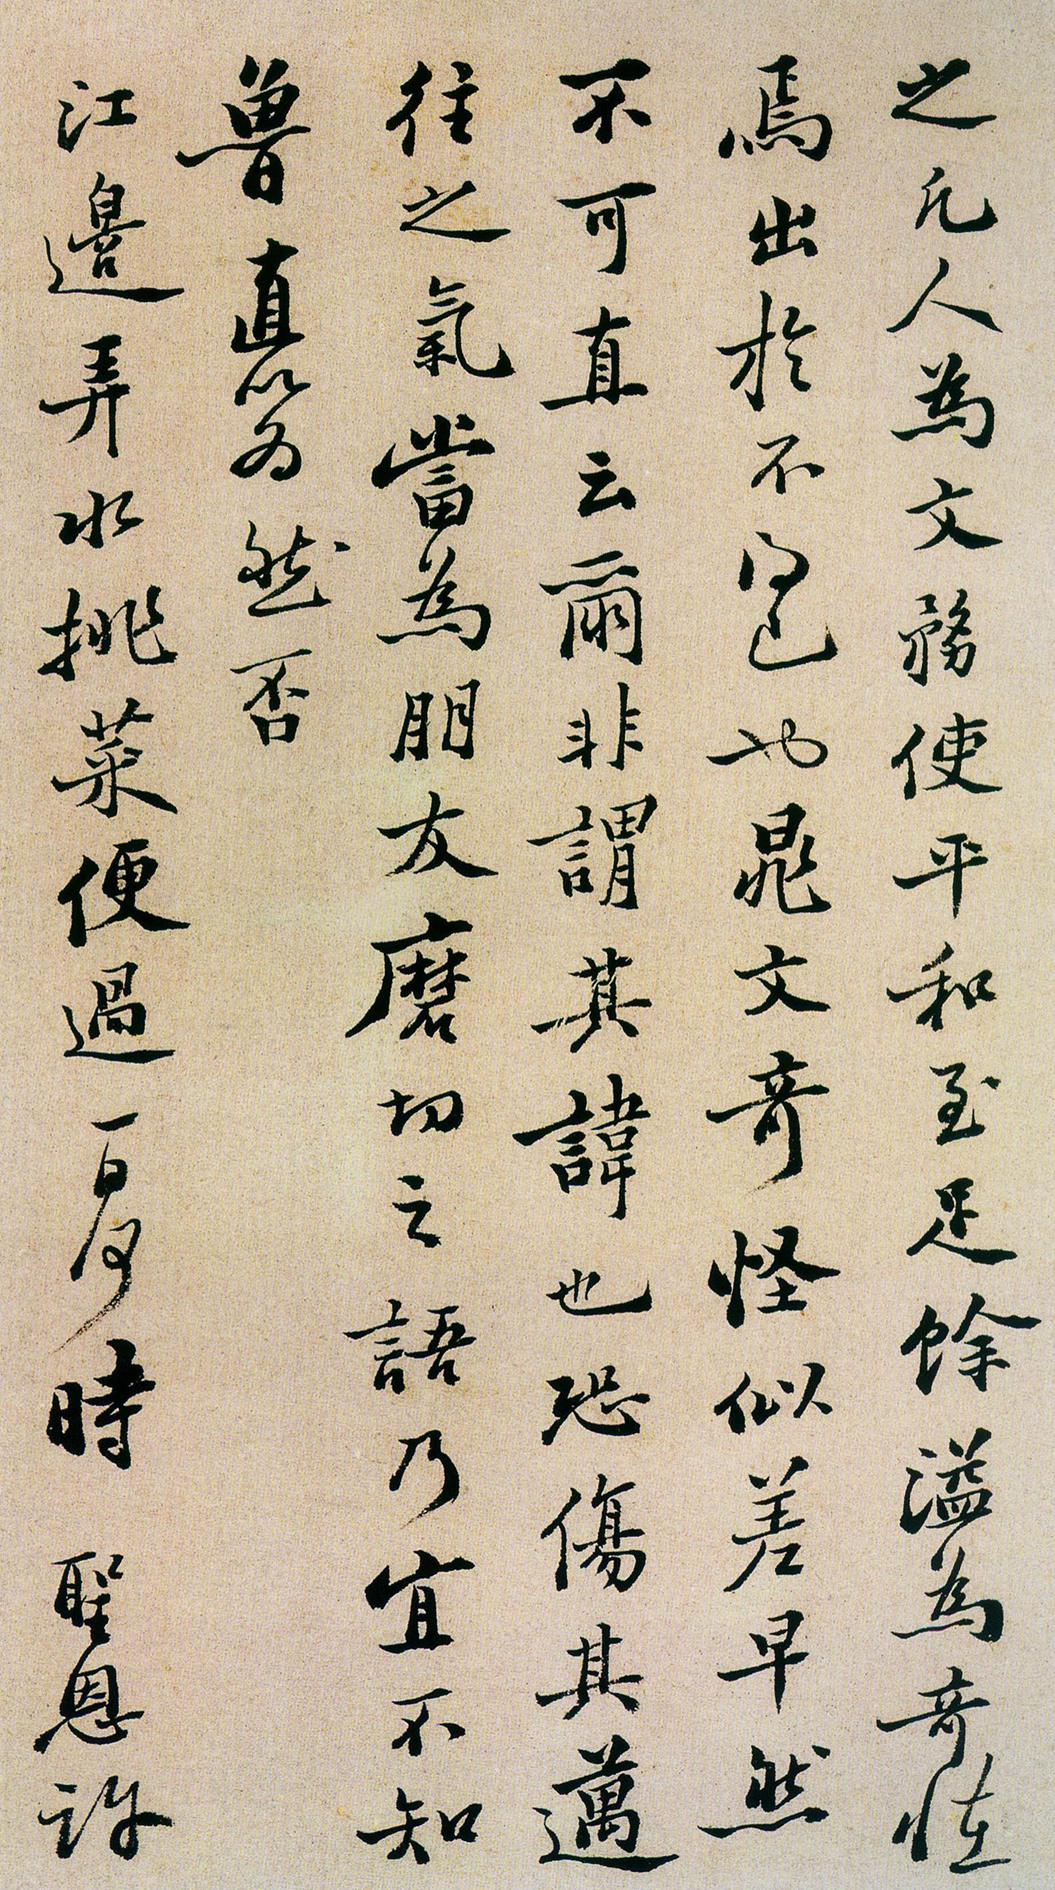 之凡人為文務使平和至足餘溢為奇怪
焉出於不得已也晁文奇怪似差早然
不可直云爾非謂其諱也恐傷其邁
往之氣當為朋友磨切之語乃宜不知
魯直以為然否
江邊弄水挑菜便過一日何時聖恩許